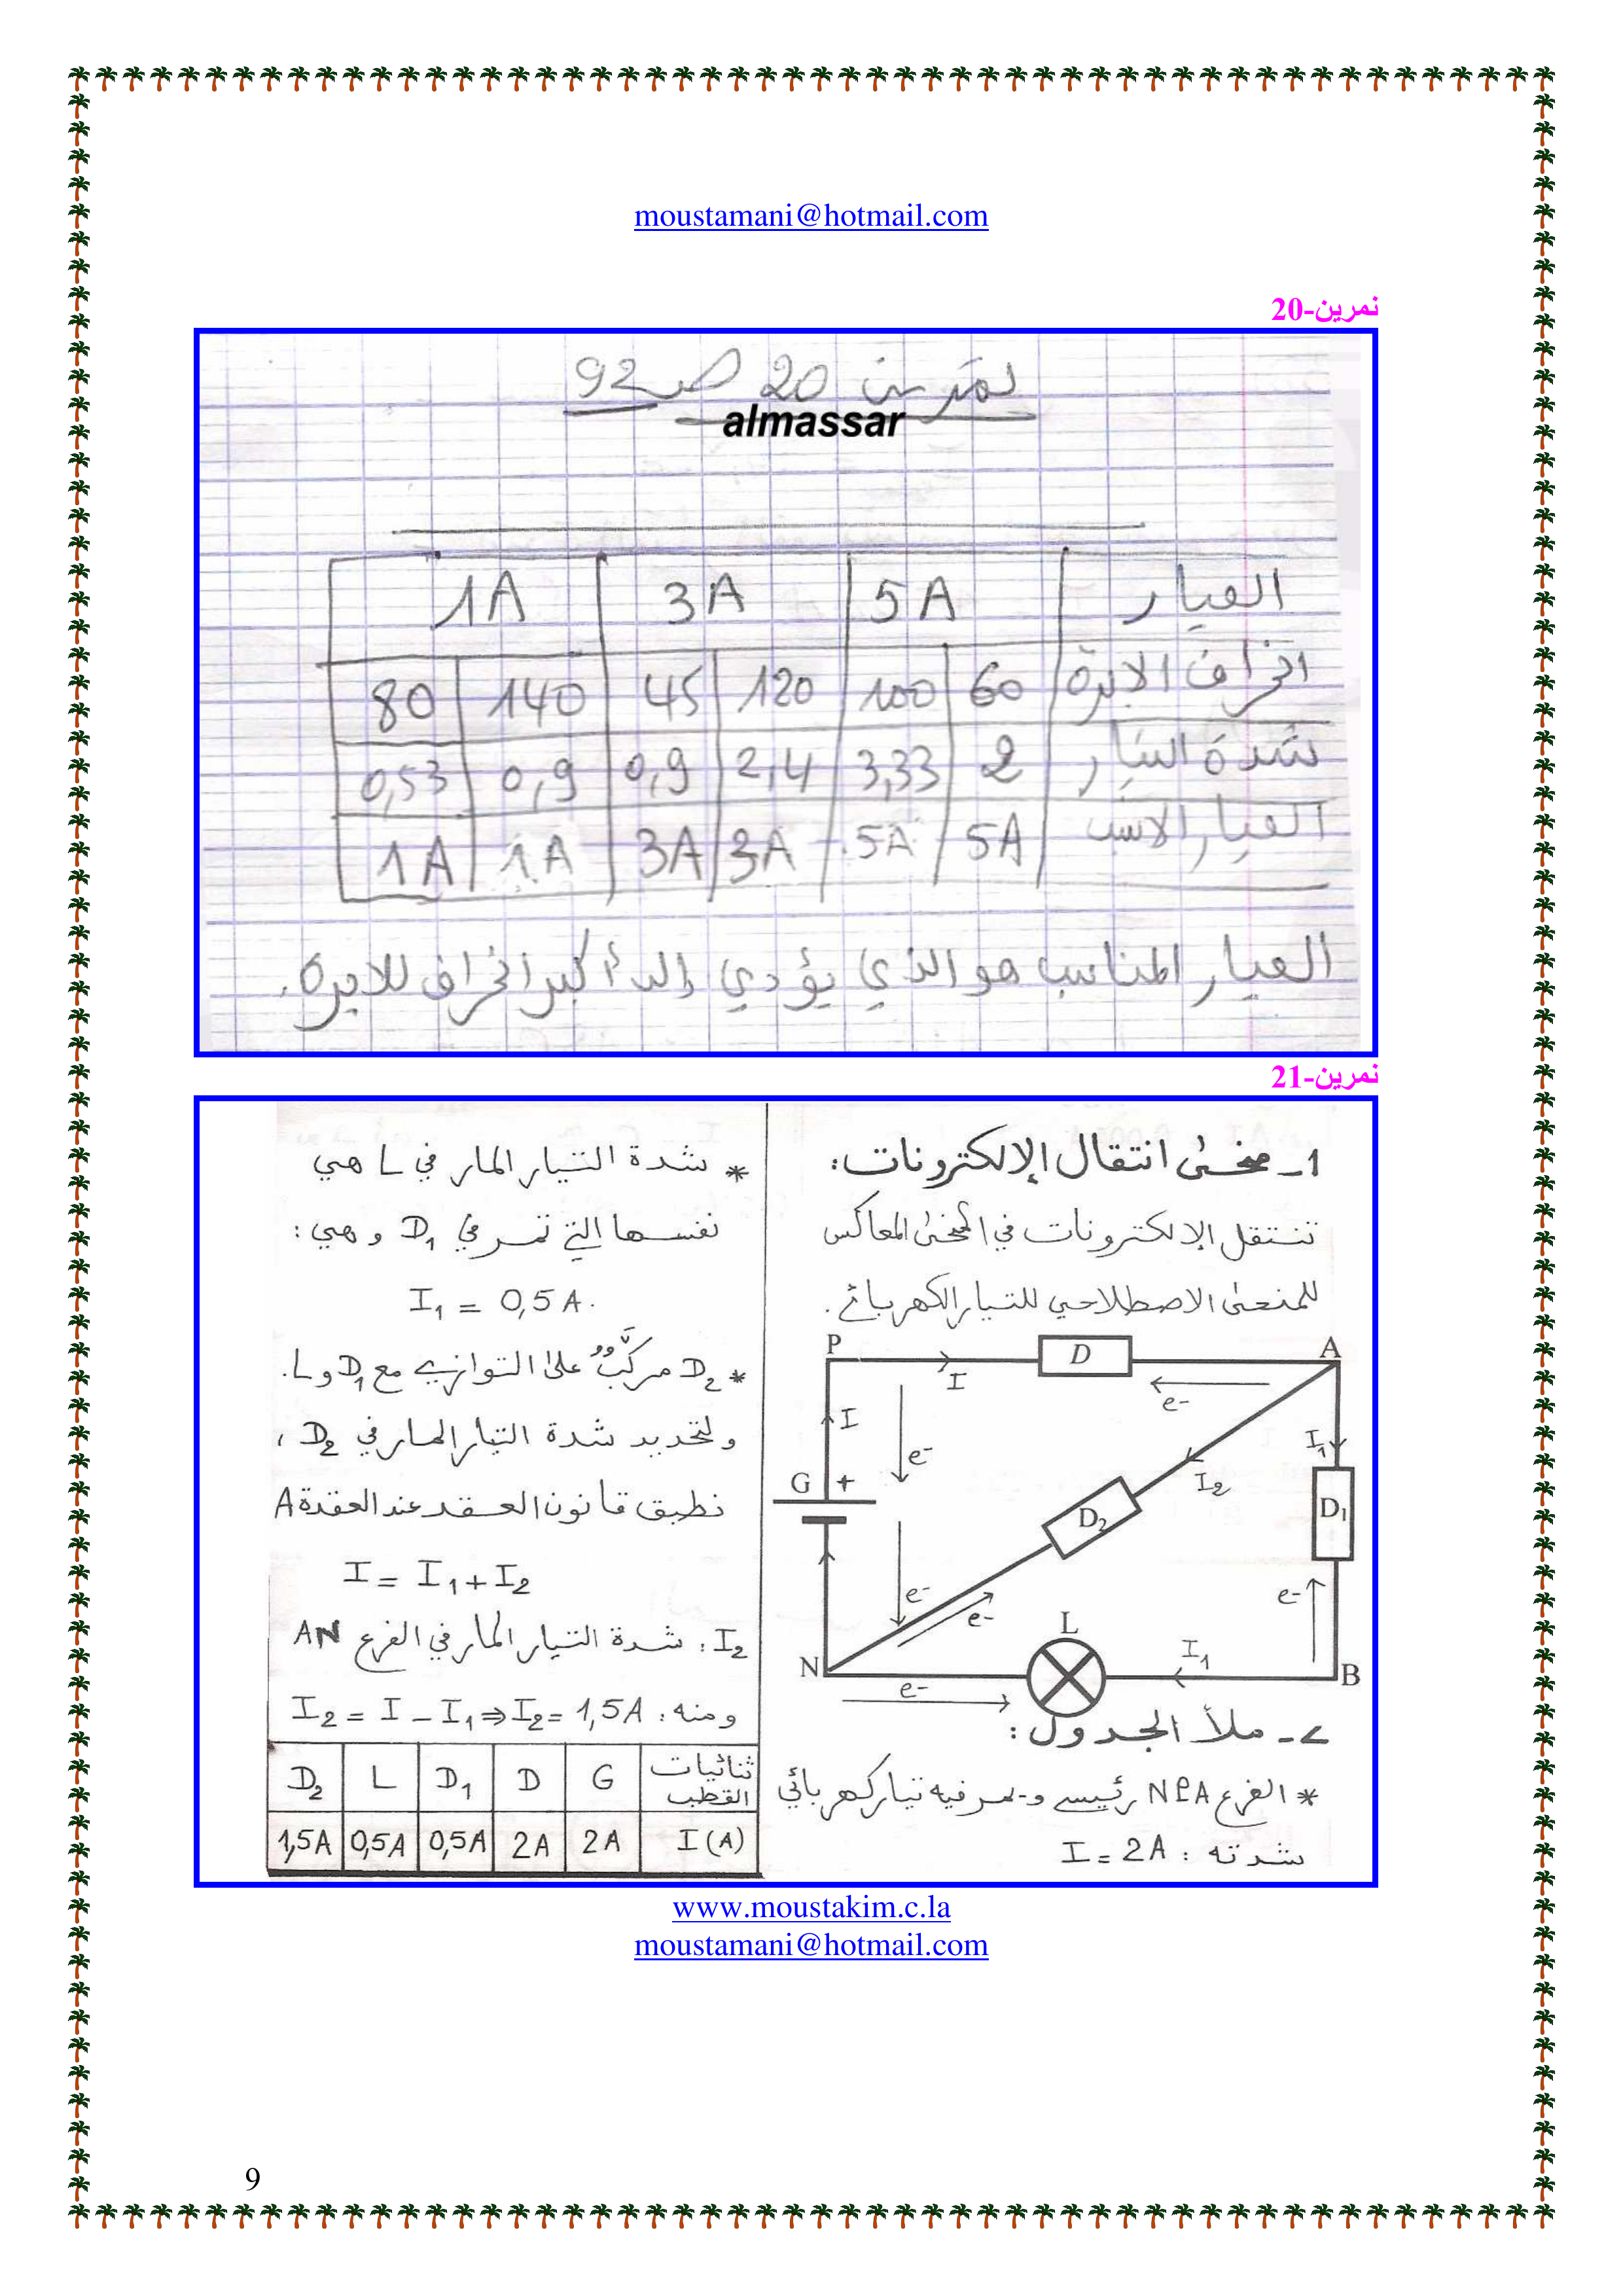 moustamani@hotmail.com
نمرين-20
تمرين 20 ص 92
almassar
العيار 5A 3A 1A
انحراف الابرة 60 100 120 45 140 80
شدة التيار 2 3,33 2,4 0,9 0,9 0,53
العيار الانسب 5A 5A 3A 3A 1A 1A
العيار المناسب هو الذي يؤدي إلى أكبر انحراف للابرة.
نمرين-21
1- منحى انتقال الإلكترونات:
تنتقل الإلكترونات في المنحى المعاكس
للمنحى الاصطلاحي للتيار الكهربائي.
P D A
I e-
I e- I1
G + I2
D2 D1
e- e- e-
L I1
N B
e-
2- ملأ الجدول:
* الفرع NPA رئيسي و يمر فيه تيار كهربائي
شدته : I = 2A
* شدة التيار المار في L هي
نفسها التي تمر في D1 وهي :
I1 = 0,5 A.
* D2 مركب على التوازي مع D1 و L.
ولتحديد شدة التيار المار في D2 ،
نطبق قانون العقد عند العقدة A
I = I1 + I2
I2 : شدة التيار المار في الفرع AN
ومنه : I2 = I - I1 ⇒ I2 = 1,5A
ثنائيات القطب G D D1 L D2
I (A) 2A 2A 0,5A 0,5A 1,5A
www.moustakim.c.la
moustamani@hotmail.com
9